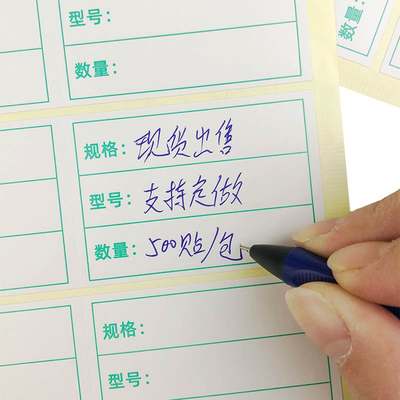 型号：
数量：
数量：
规格：现货出售
型号：支持定做
数量：500贴/包
规格：
型号：